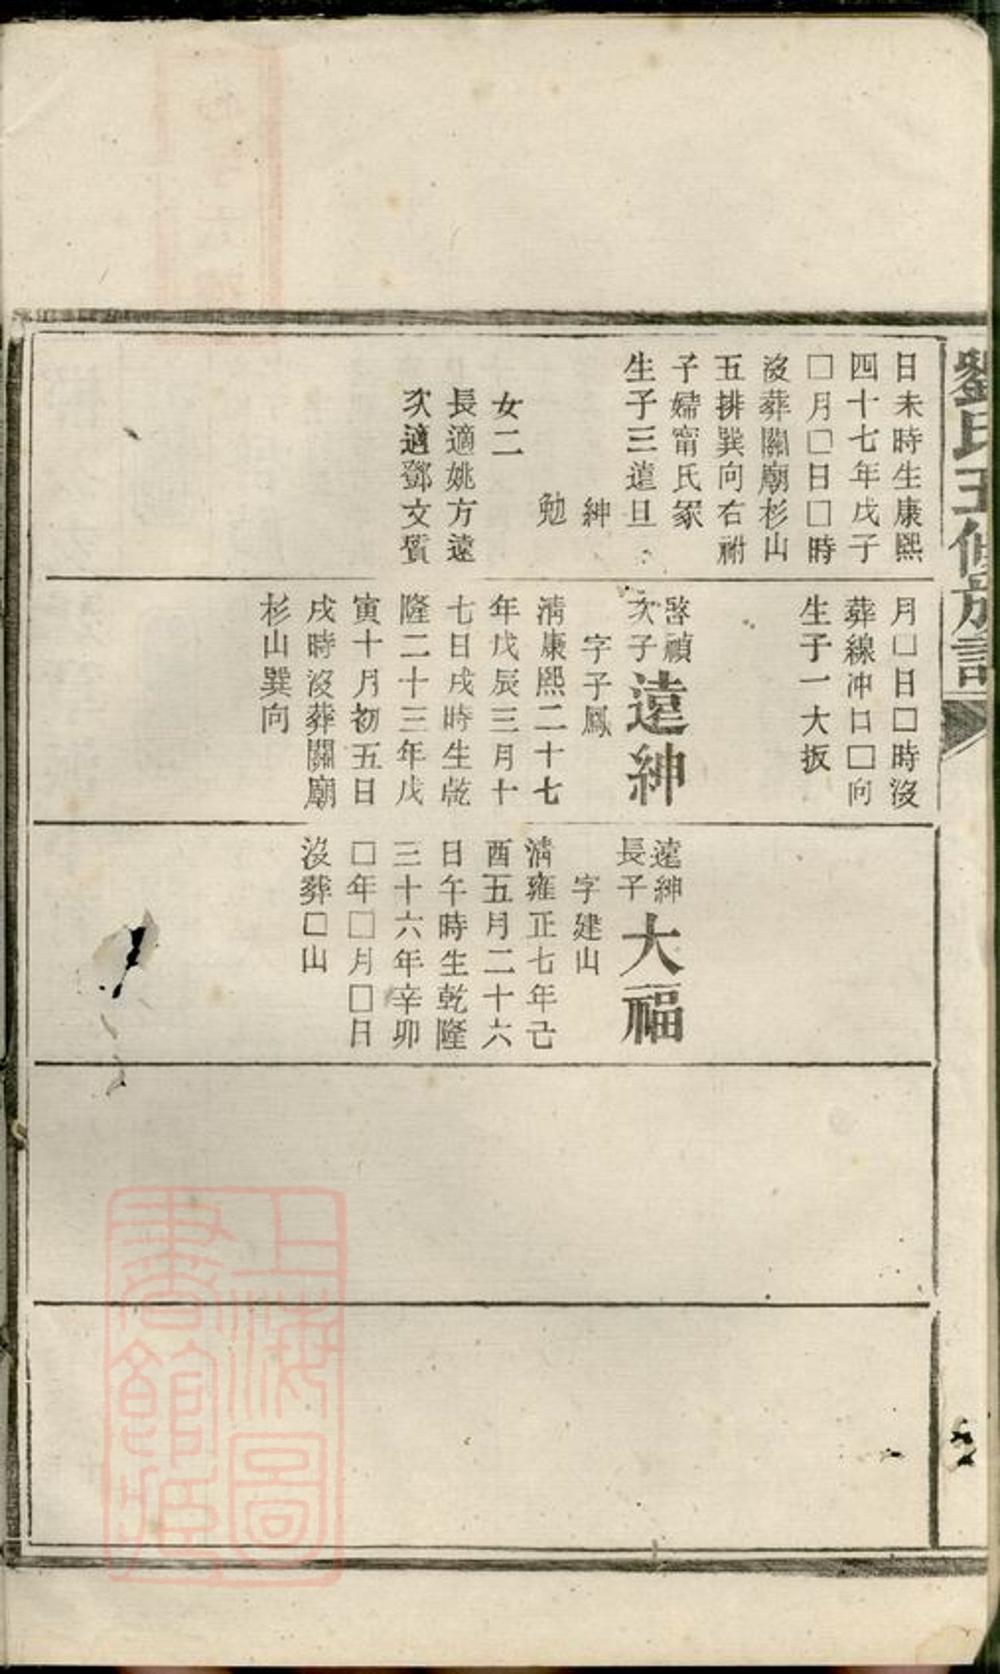 劉氏五修族譜
日未時生康熙
四十七年戊子
□月□日□時
沒葬關廟杉山
五排巽向右祔
子婦甯氏冢
生子三遠旦
紳
勉
女二
長適姚方遠
次適鄧文質
月□日□時沒
葬線冲口□向
生子一大扳
啓禎
次子遠紳
字子鳳
清康熙二十七
年戊辰三月十
七日戌時生乾
隆二十三年戊
寅十月初五日
戌時沒葬關廟
杉山巽向
遠紳
長子大福
字建山
清雍正七年己
酉五月二十六
日午時生乾隆
三十六年辛卯
□年□月□日
沒葬□山
上海圖
書館藏